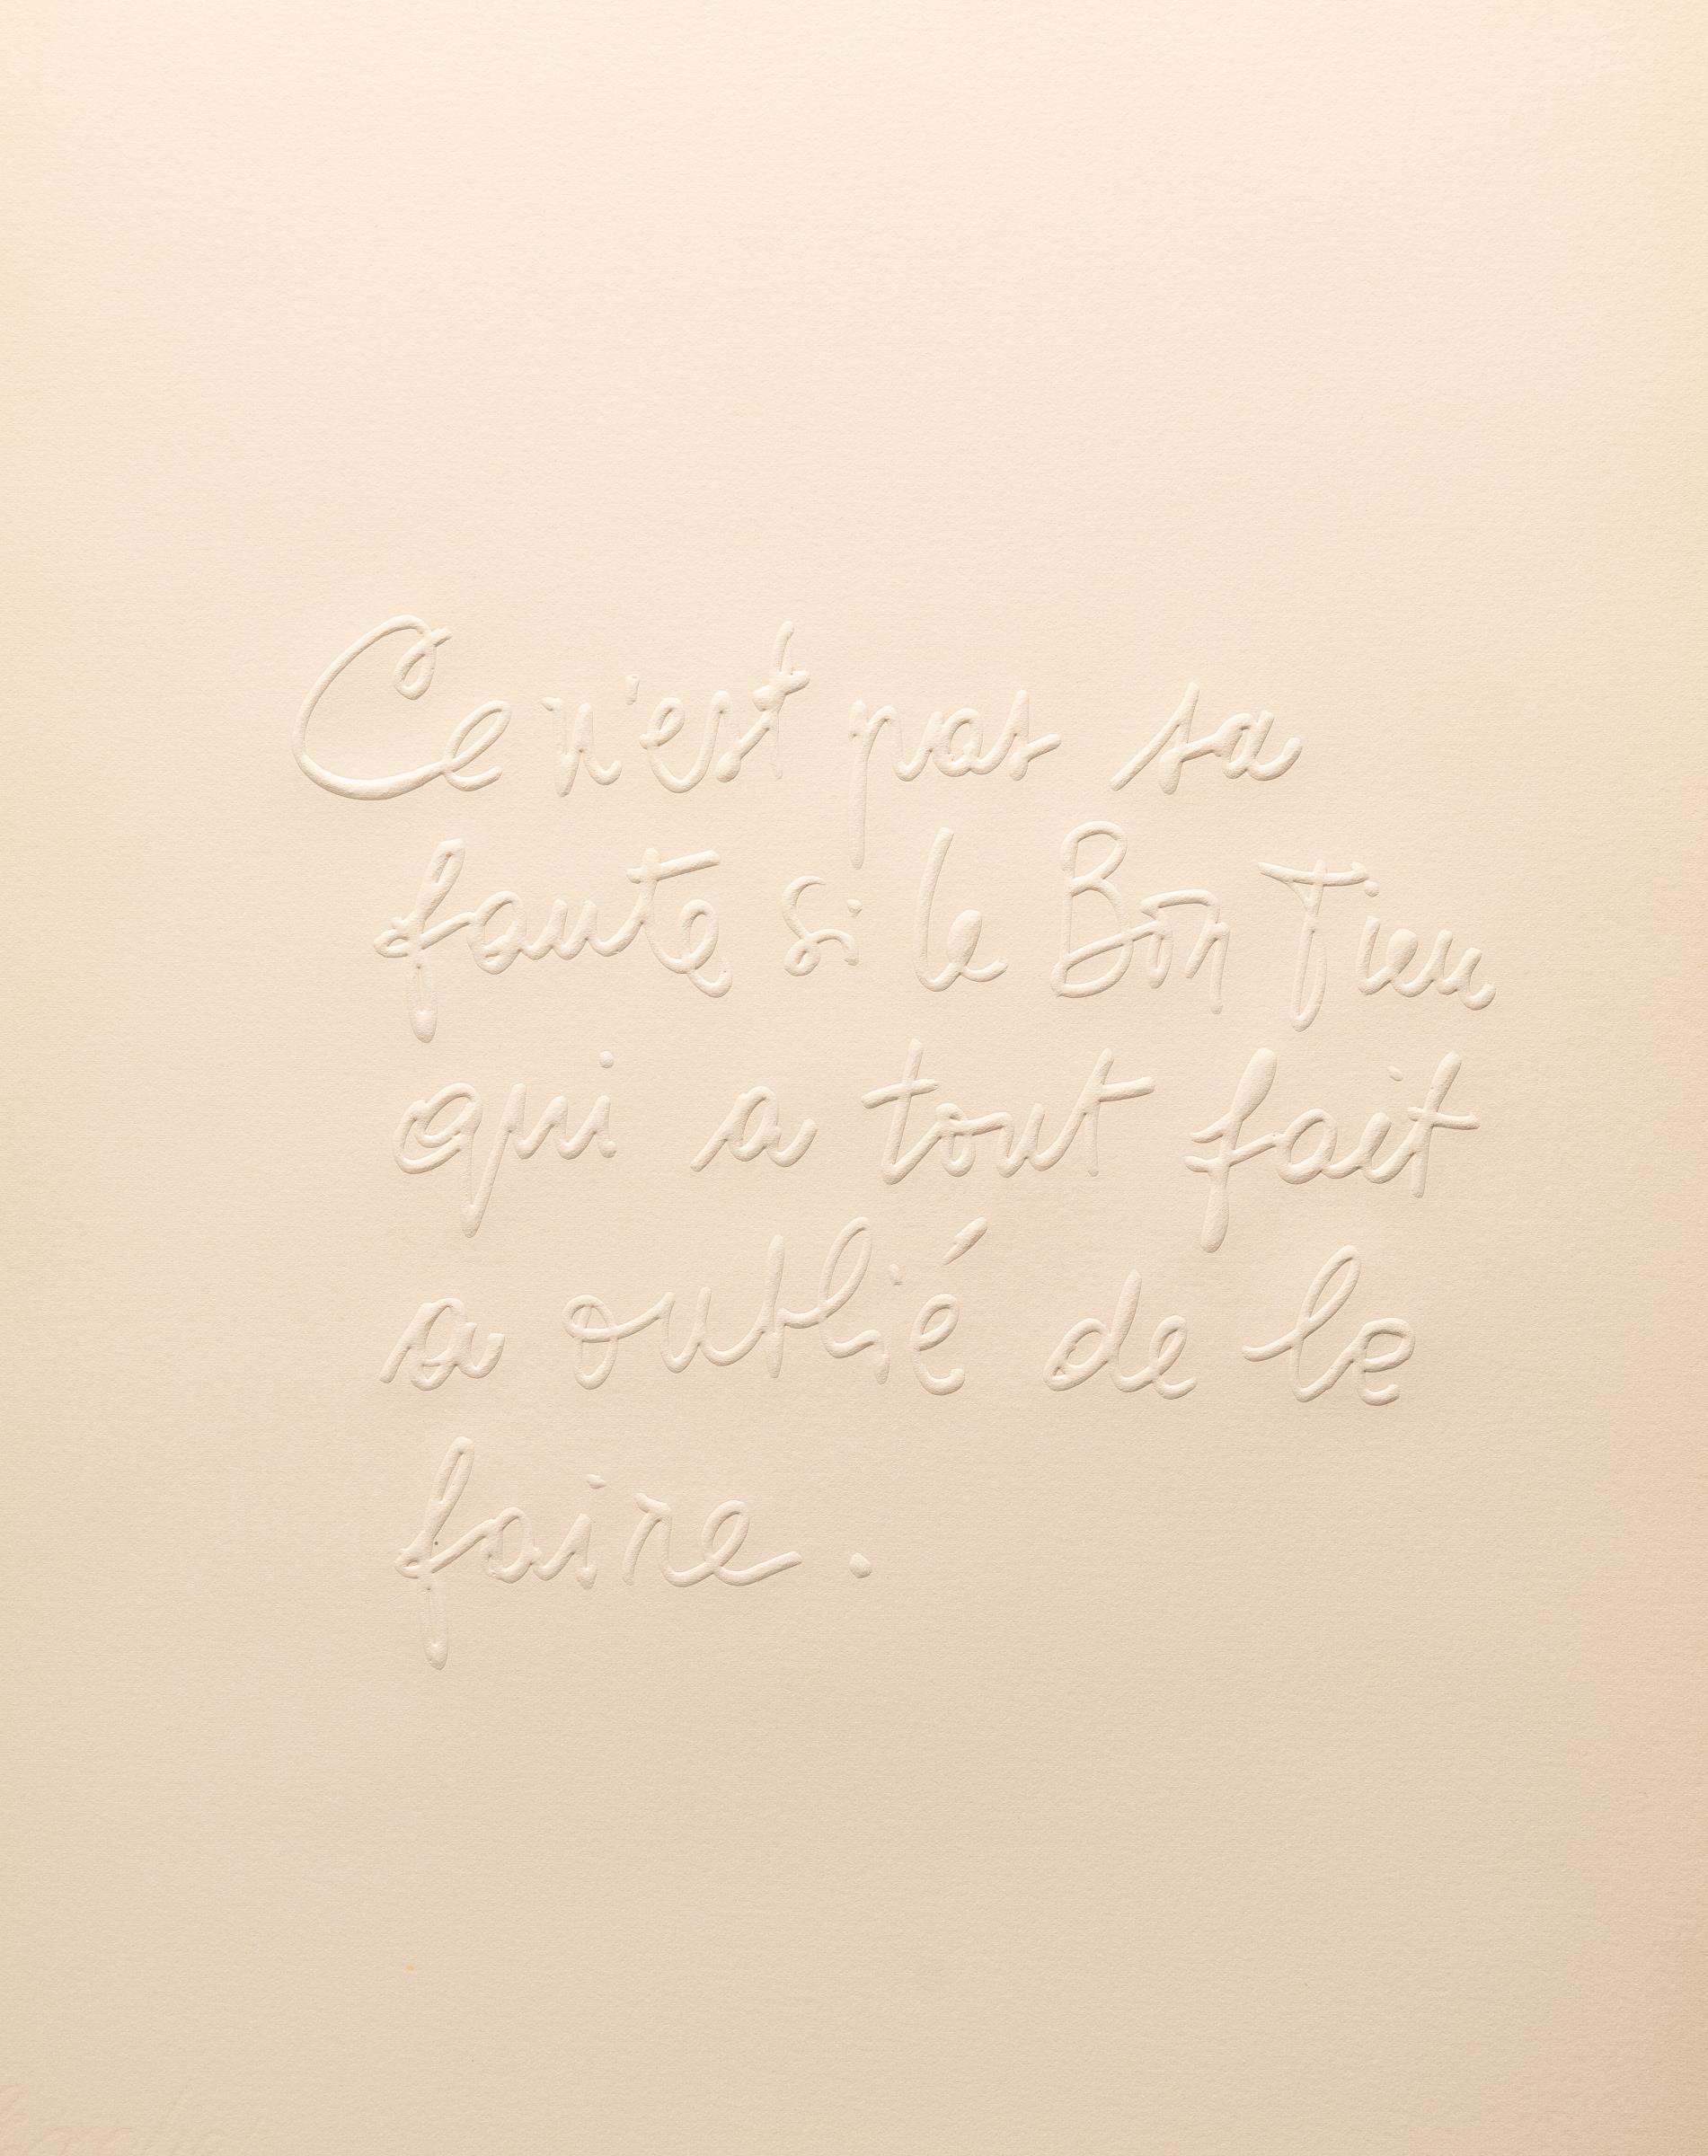 Ce n'est pas sa
faute si le Bon Tieu
qui a tout fait
a oublié de le
faire.